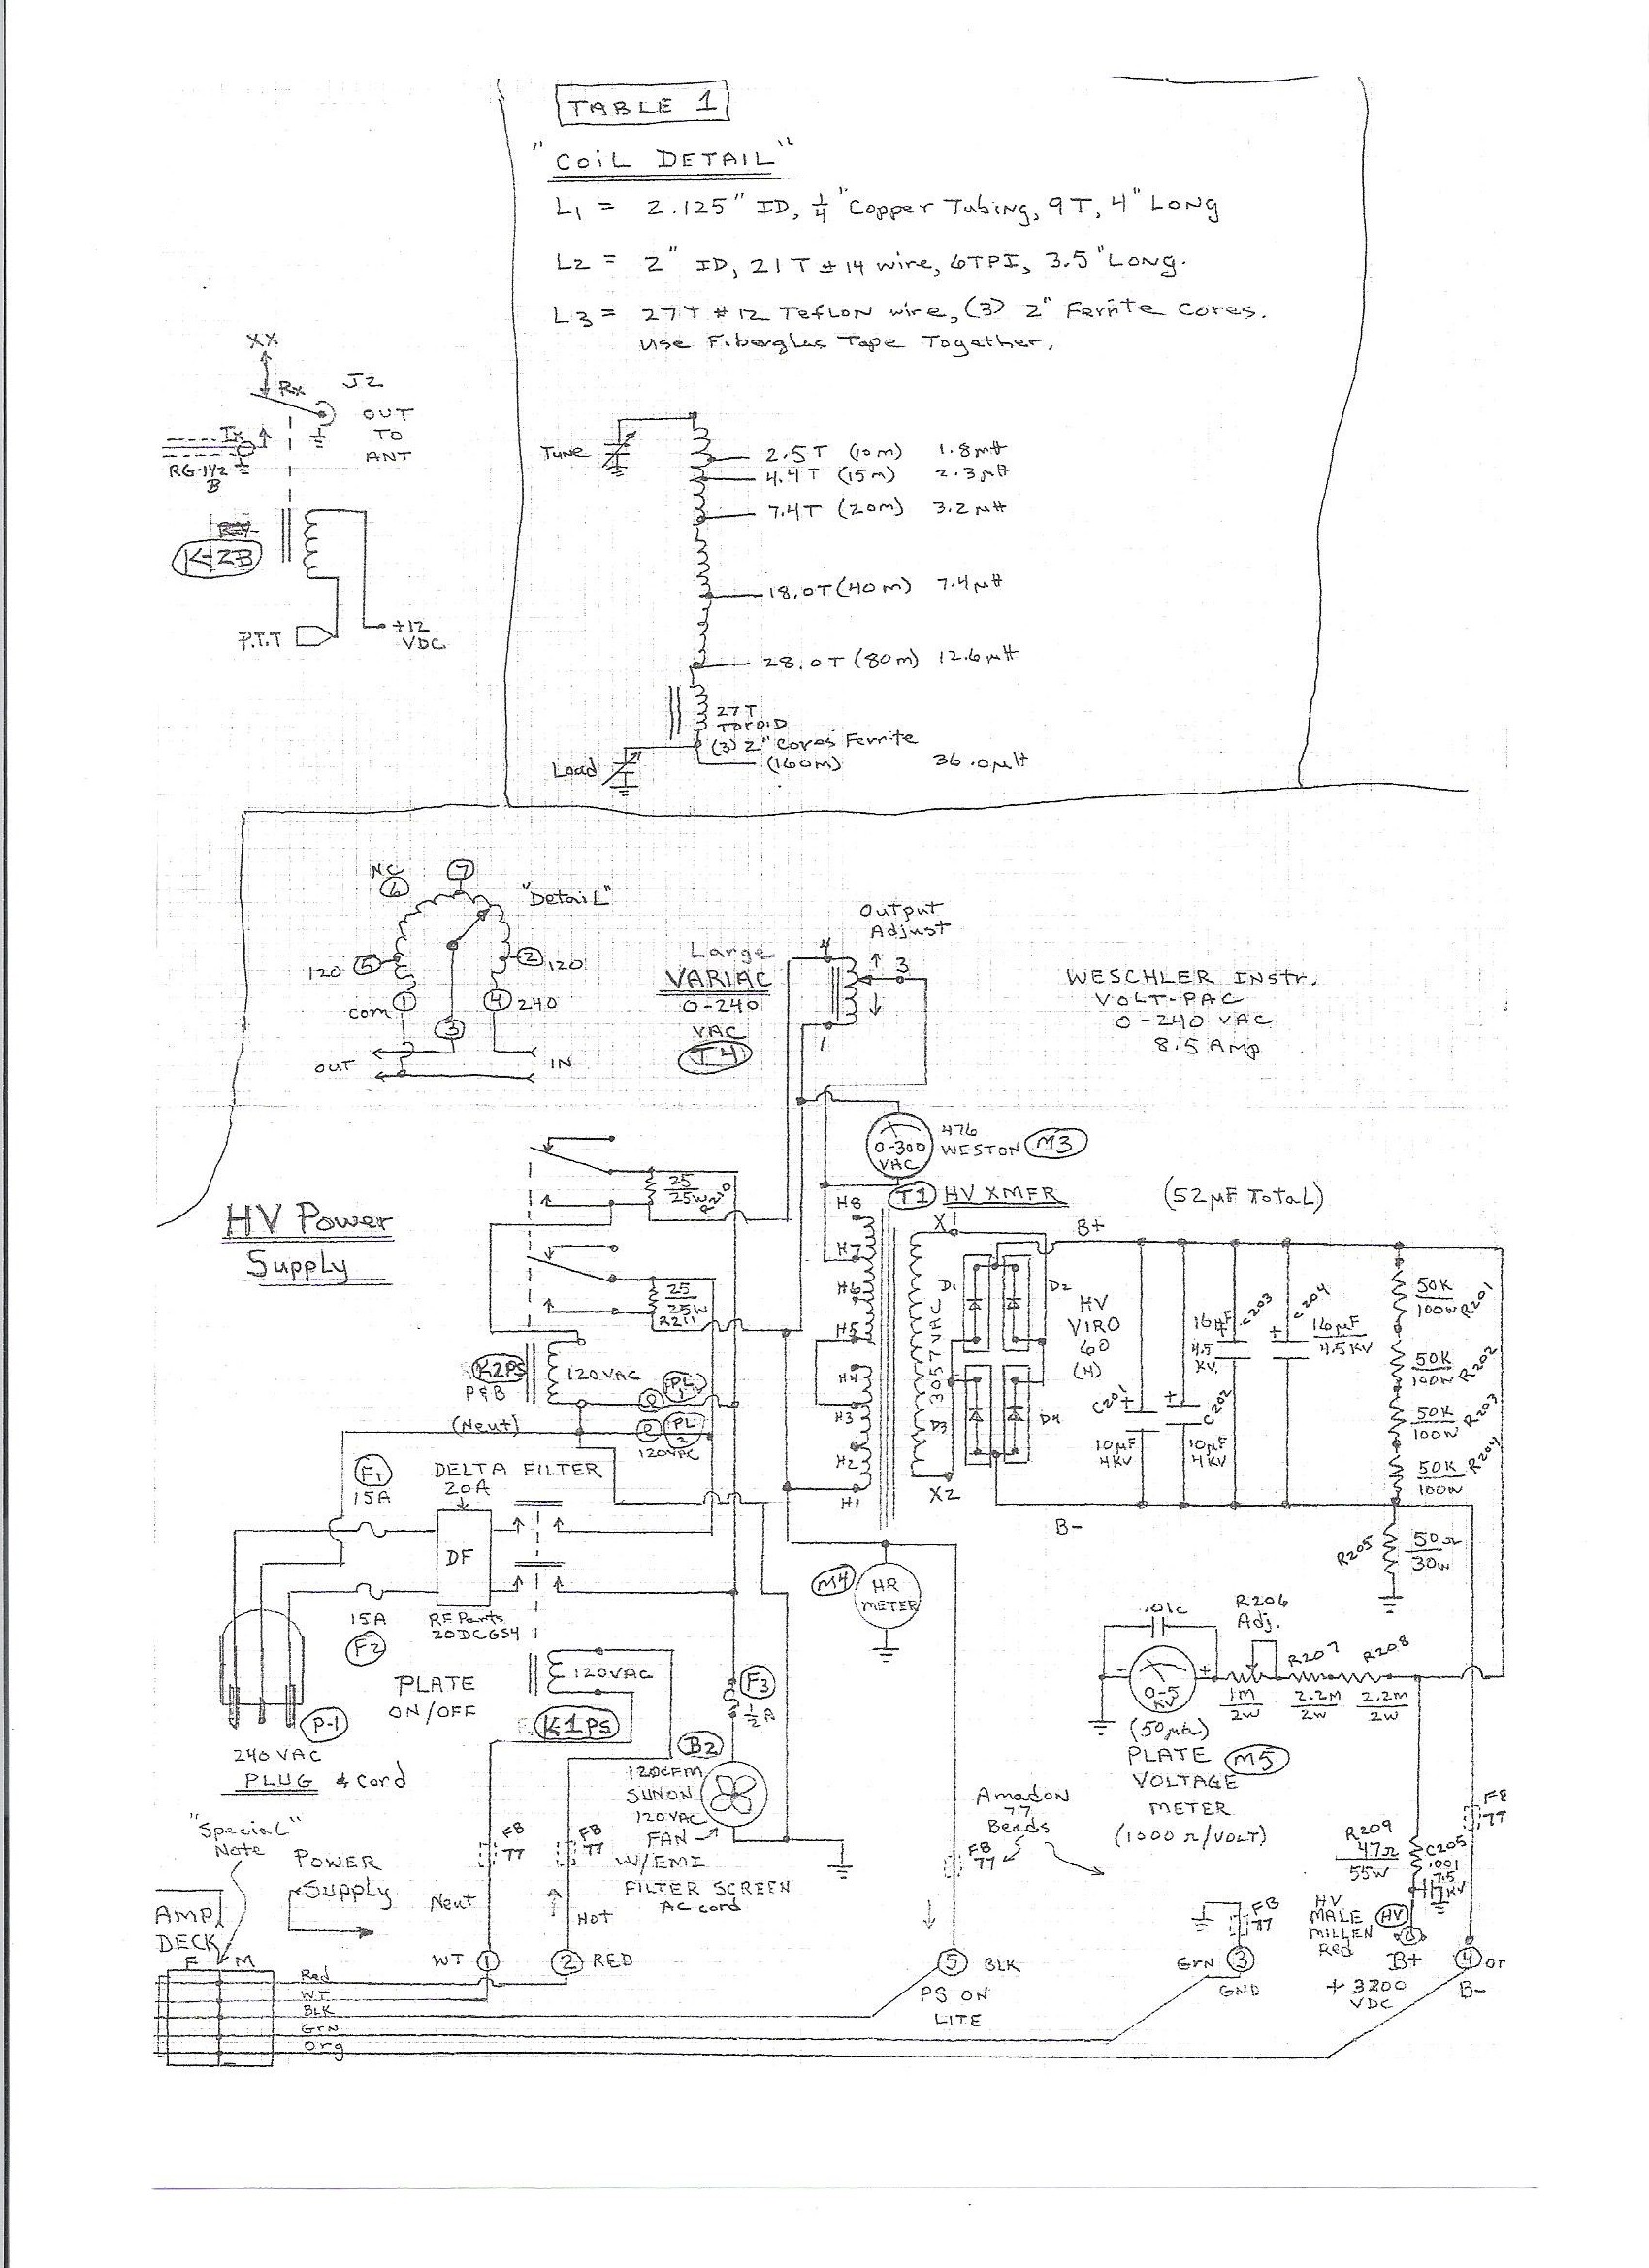 TABLE 1
"COIL DETAIL"
L1 = 2.125" ID, 1/4" Copper Tubing, 9T, 4" Long
L2 = 2" ID, 21T #14 wire, 6TPI, 3.5" Long.
L3 = 27T #12 Teflon wire, (3) 2" Ferrite Cores.
Use Fiberglas Tape Together.
XX
Rx
J2
OUT
TO
ANT
Tx
RG-142
B
K-2B
P.T.T
+12
VDC
Tune
2.5T (10m) 1.8µH
4.4T (15m) 2.3µH
7.4T (20m) 3.2µH
18.0T (40m) 7.4µH
28.0T (80m) 12.6µH
27T
TOROID
(3) 2" Cores Ferrite
(160m) 36.0µH
Load
NC
6
7
"Detail"
120 5
2 120
com 1
4 240
3
OUT
IN
Large
VARIAC
0-240
VAC
T4
Output
Adjust
4
3
1
WESCHLER Instr.
VOLT-PAC
0-240 VAC
8.5 Amp
0-300
VAC
476
WESTON M3
HV Power
Supply
25
25W
25
25W
R211
K2PS
P&B
120VAC
PL
1
PL
2
120VAC
(Neut)
T1 HV XMFR
(52µF Total)
H8
H7
H6
H5
H4
H3
H2
H1
X1
X2
3057 VAC
B+
D1
D2
D3
D4
HV
VIRO
60
(4)
16µF
4.5
KV
C203
C204
16µF
4.5KV
C201
C202
10µF
4KV
10µF
4KV
50K
100W R201
50K
100W R202
50K
100W R203
50K
100W R204
B-
R205
50Ω
30W
F1
15A
DELTA FILTER
20A
DF
15A
F2
RF Parts
20DCGS4
PLATE
ON/OFF
120VAC
K1PS
P-1
240 VAC
PLUG & Cord
M4
HR
METER
F3
1/2 A
B2
120CFM
SUNON
120VAC
FAN
W/EMI
FILTER SCREEN
AC cord
.01c
- +
0-5
KV
(50µa)
PLATE
VOLTAGE
METER
M5
(1000 Ω/VOLT)
R206
Adj.
1M
2W
R207
2.2M
2W
R208
2.2M
2W
Amadon
77
Beads
FB
77
FB
77
FB
77
FB
77
R209
47Ω
55W
C205
.001
7.5
KV
HV
MALE
MILLEN
Red
HV
B+
+3200
VDC
4 or
B-
"Special"
Note
POWER
Supply
AMP
DECK
F M
Neut
Hot
WT 1
2 RED
5 BLK
PS ON
LITE
Grn 3
GND
Red
WT
BLK
Grn
Org